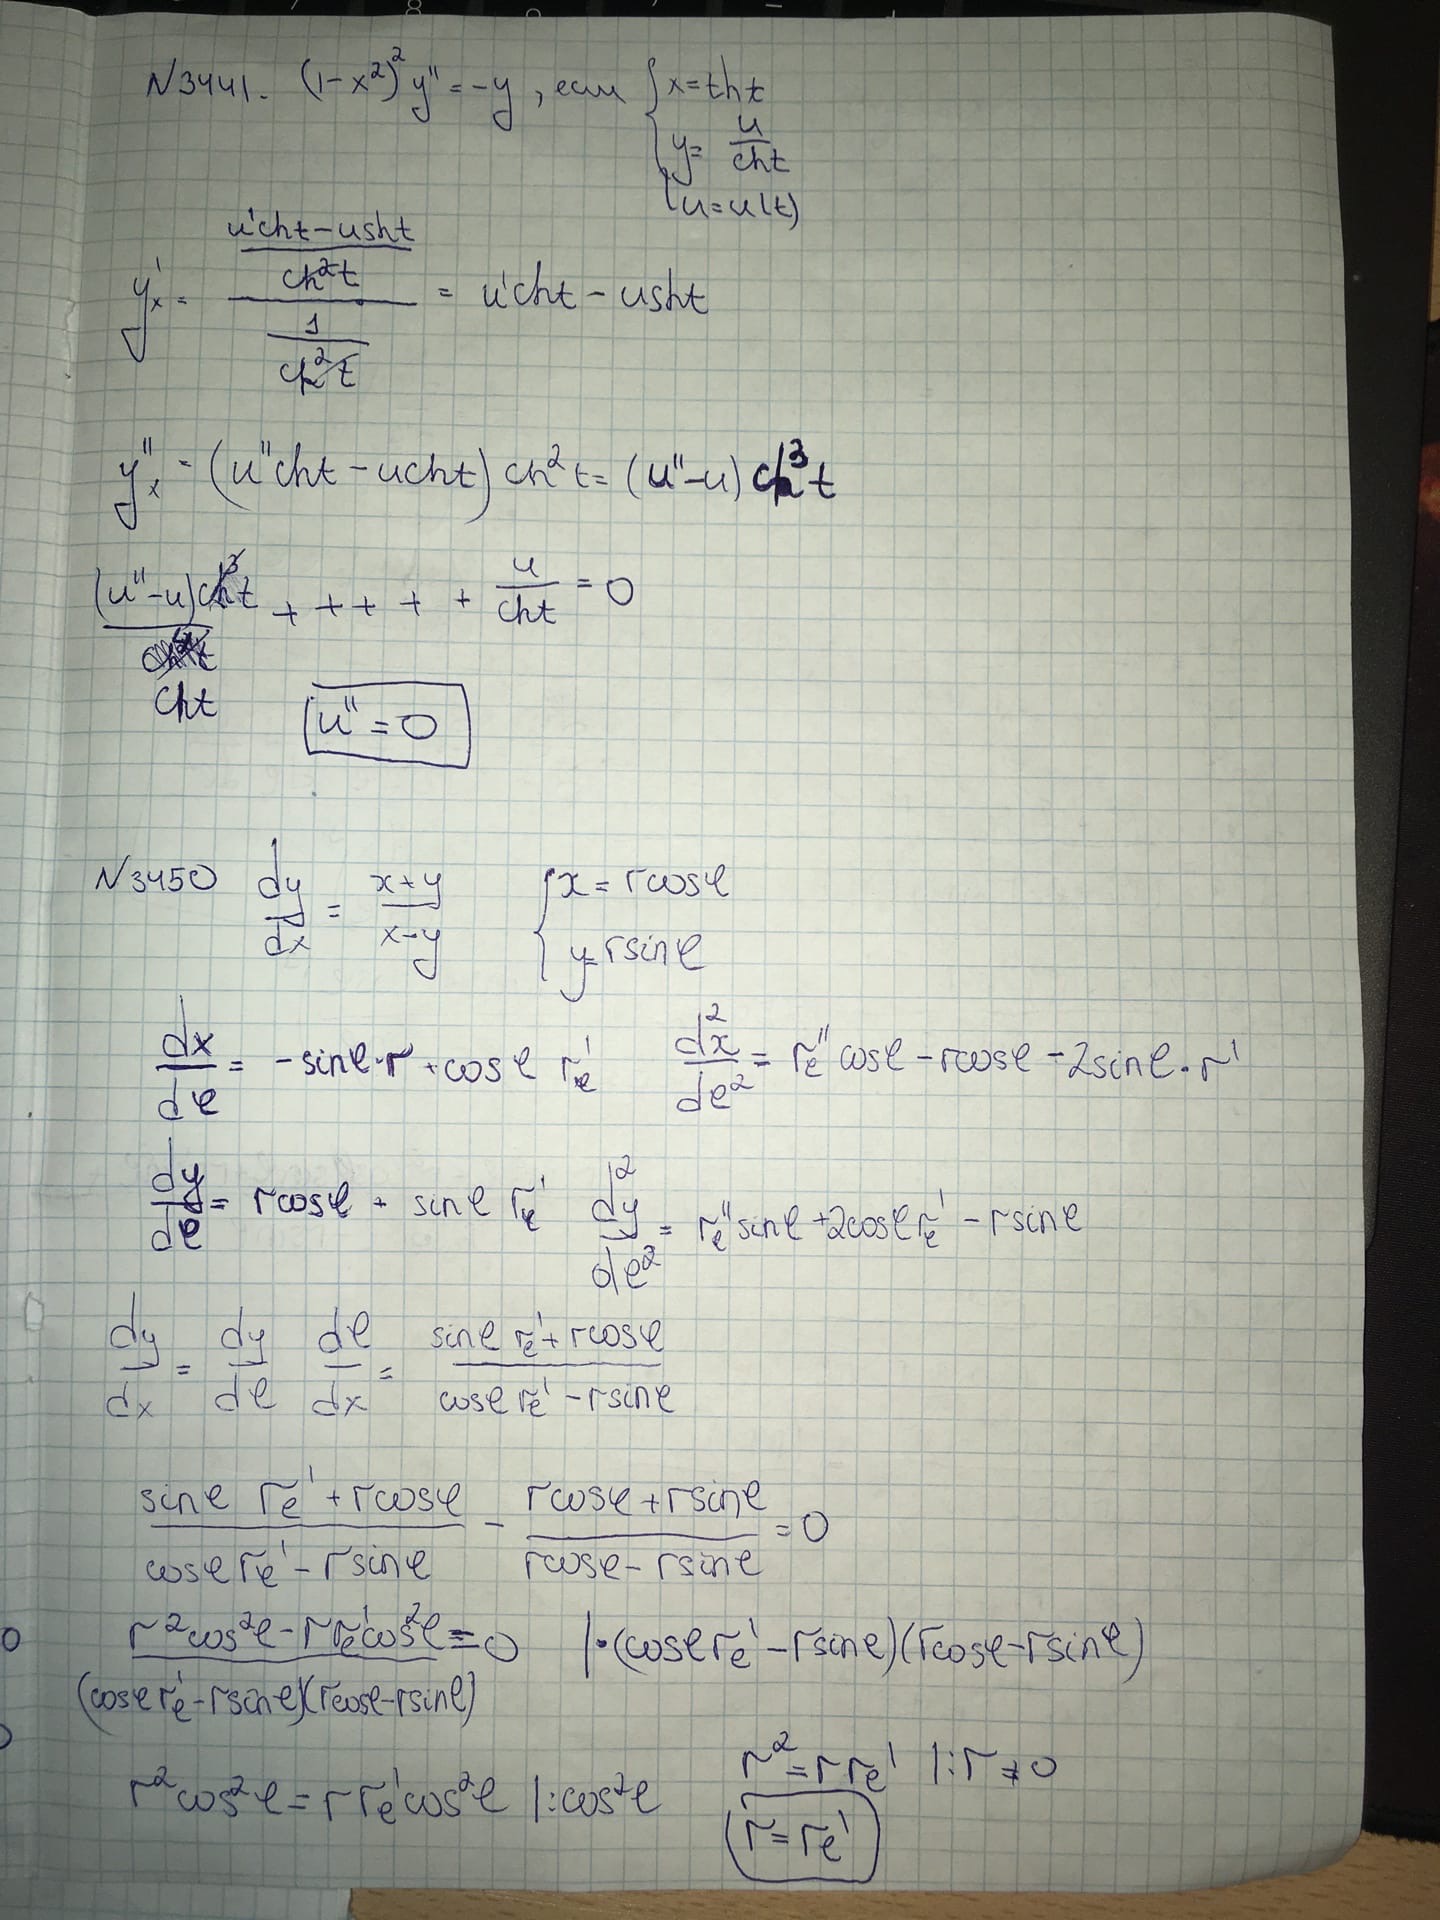 N3441. (1-x²)² y'' = -y, если { x = th t
y = u/ch t
u = u(t)
y'ₓ = ((u'ch t - u sh t)/ch²t)/(1/ch²t) = u'ch t - u sh t
y''ₓ = (u''ch t - u ch t) ch²t = (u''-u) ch³t
(u''-u)ch³t/ch t + + + + + u/ch t = 0
u'' = 0
N3450 dy/dx = (x+y)/(x-y) { x = r cosφ
y = r sinφ
dx/dφ = -sinφ·r + cosφ r'φ d²x/dφ² = r''φ cosφ - r cosφ - 2sinφ·r'
dy/dφ = r cosφ + sinφ r'φ d²y/dφ² = r''φ sinφ + 2cosφ r'φ - r sinφ
dy/dx = dy/dφ dφ/dx = (sinφ r'φ + r cosφ)/(cosφ r'φ - r sinφ)
(sinφ r'φ + r cosφ)/(cosφ r'φ - r sinφ) - (r cosφ + r sinφ)/(r cosφ - r sinφ) = 0
(r²cos²φ - r r'φ cos²φ)/((cosφ r'φ - r sinφ)(r cosφ - r sinφ)) = 0 |·(cosφ r'φ - r sinφ)(r cosφ - r sinφ)
r²cos²φ = r r'φ cos²φ |:cos²φ r² = r r'φ |:r ≠ 0
r = r'φ